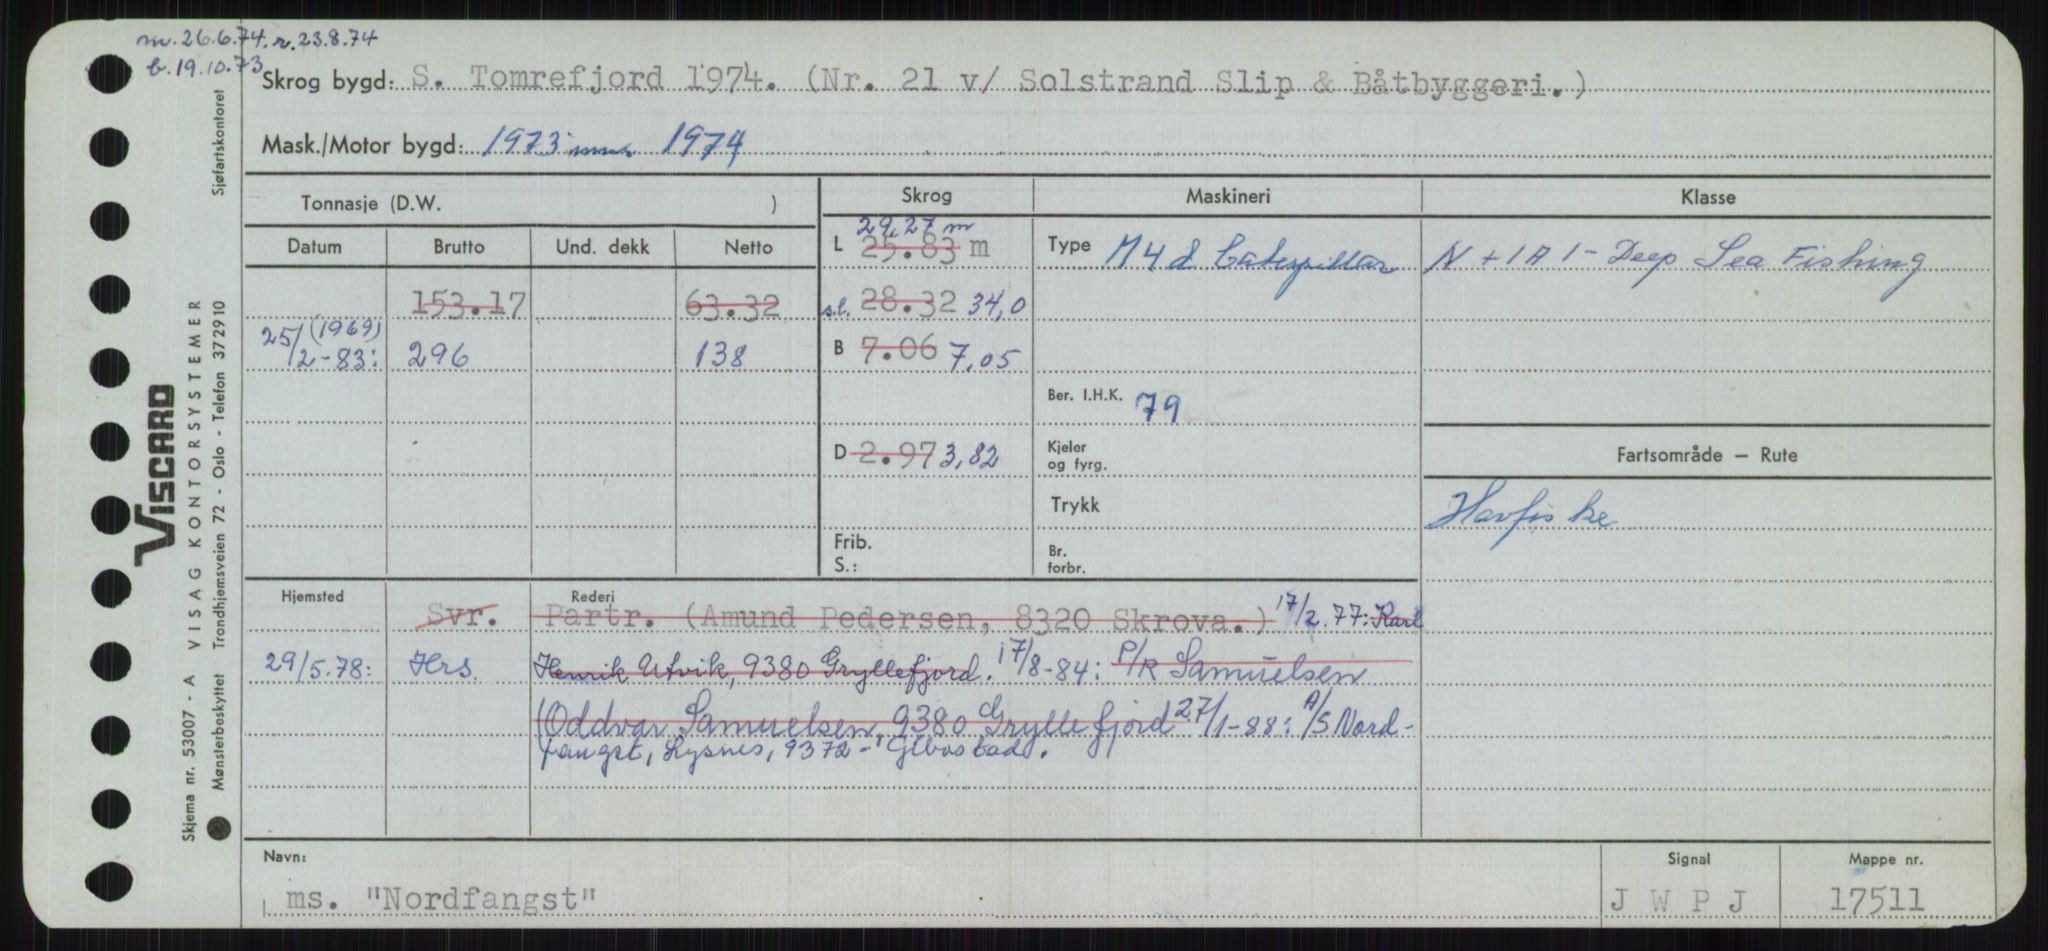 m. 26.6.74. r. 23.8.74
b. 19.10.73
Skrog bygd: S. Tomrefjord 1974. (Nr. 21 v/ Solstrand Slip & Båtbyggeri.)
Mask./Motor bygd: 1973 mmr 1974
Tonnasje (D.W. ) Skrog Maskineri Klasse
Datum Brutto Und. dekk Netto
29,27 m
L 25.83 m Type M4d Caterpillar N + 1A1 - Deep Sea Fishing
153.17 63.32 s.l. 28.32 34,0
25/2-83: (1969) 296 138 B 7.06 7,05
Ber. I.H.K. 79
D 2.97 3,82 Kjeler og fyrg. Fartsområde – Rute
Trykk Havfiske
Frib.
S.:
Br. forbr.
Hjemsted Rederi
Svr. Partr. (Amund Pedersen, 8320 Skrova.) 17/2.77: Karl
29/5.78: Hrs. Henrik Utvik, 9380 Gryllefjord. 17/8-84: P/R Samuelsen
(Oddvar Samuelsen, 9380 Gryllefjord 27/1-88: A/S Nord-
fangst, Lysnes, 9372 - Gibostad.
Navn: Signal Mappe nr.
ms. "Nordfangst" J W P J 17511
VISCARD
VISAG KONTORSYSTEMER
Skjema nr. 53007 - A
Mønsterbeskyttet Trondhjemsveien 72 - Oslo - Telefon 372910 Sjøfartskontoret